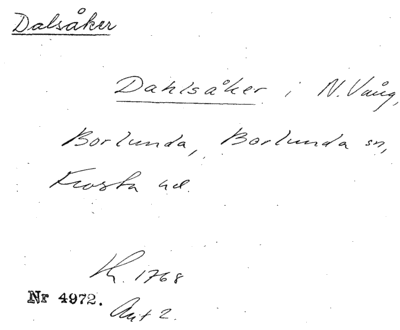 Dalsåker
Dahlsåker i N. Vång,
Borlunda, Borlunda sn,
Frosta hd.
Lk. 1768
Nr 4972.
Akt 2.